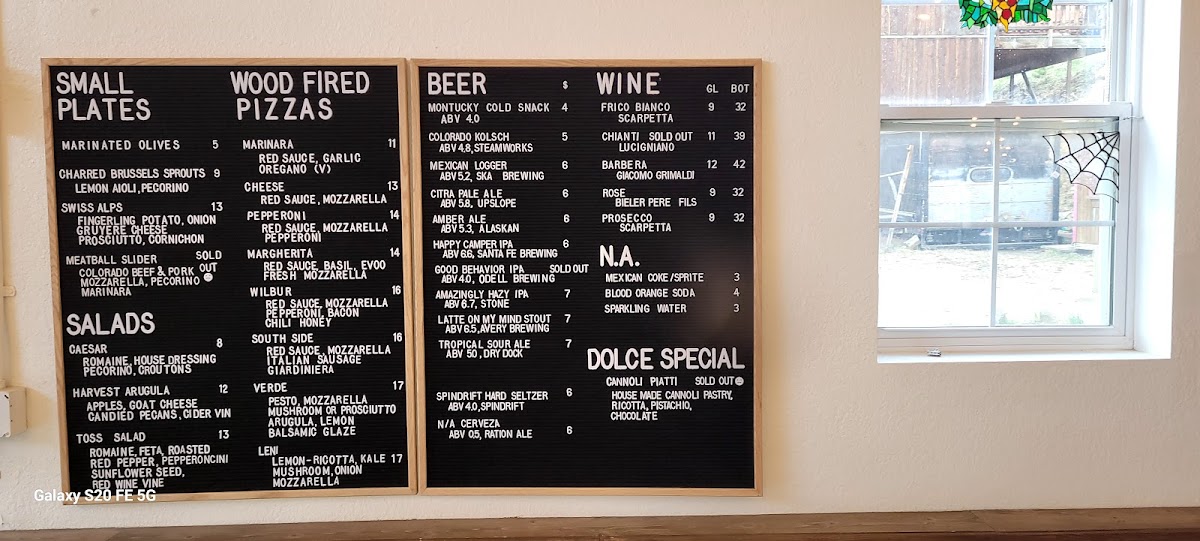 SMALL
PLATES
MARINATED OLIVES 5
CHARRED BRUSSELS SPROUTS 9
LEMON AIOLI, PECORINO
SWISS ALPS 13
FINGERLING POTATO, ONION
GRUYERE CHEESE
PROSCIUTTO, CORNICHON
MEATBALL SLIDER SOLD
COLORADO BEEF & PORK OUT
MOZZARELLA, PECORINO
MARINARA
SALADS
CAESAR 8
ROMAINE, HOUSE DRESSING
PECORINO, CROUTONS
HARVEST ARUGULA 12
APPLES, GOAT CHEESE
CANDIED PECANS, CIDER VIN
TOSS SALAD 13
ROMAINE, FETA, ROASTED
RED PEPPER, PEPPERONCINI
SUNFLOWER SEED,
RED WINE VINE
WOOD FIRED
PIZZAS
MARINARA 11
RED SAUCE, GARLIC
OREGANO (V)
CHEESE 13
RED SAUCE, MOZZARELLA
PEPPERONI 14
RED SAUCE, MOZZARELLA
PEPPERONI
MARGHERITA 14
RED SAUCE, BASIL, EVOO
FRESH MOZZARELLA
WILBUR 16
RED SAUCE, MOZZARELLA
PEPPERONI, BACON
CHILI HONEY
SOUTH SIDE 16
RED SAUCE, MOZZARELLA
ITALIAN SAUSAGE
GIARDINIERA
VERDE 17
PESTO, MOZZARELLA
MUSHROOM OR PROSCIUTTO
ARUGULA, LEMON
BALSAMIC GLAZE
LENI
LEMON-RICOTTA, KALE 17
MUSHROOM, ONION
MOZZARELLA
BEER $
MONTUCKY COLD SNACK 4
ABV 4.0
COLORADO KOLSCH 5
ABV 4.8, STEAMWORKS
MEXICAN LOGGER 6
ABV 5.2, SKA BREWING
CITRA PALE ALE 6
ABV 5.8, UPSLOPE
AMBER ALE 6
ABV 5.3, ALASKAN
HAPPY CAMPER IPA 6
ABV 6.6, SANTA FE BREWING
GOOD BEHAVIOR IPA SOLD OUT
ABV 4.0, ODELL BREWING
AMAZINGLY HAZY IPA 7
ABV 6.7, STONE
LATTE ON MY MIND STOUT 7
ABV 6.5, AVERY BREWING
TROPICAL SOUR ALE 7
ABV 5.0, DRY DOCK
SPINDRIFT HARD SELTZER 6
ABV 4.0, SPINDRIFT
N/A CERVEZA
ABV 0.5, RATION ALE 6
WINE GL BOT
FRICO BIANCO 9 32
SCARPETTA
CHIANTI SOLD OUT 11 39
LUCIGNIANO
BARBERA 12 42
GIACOMO GRIMALDI
ROSE 9 32
BIELER PERE FILS
PROSECCO 9 32
SCARPETTA
N.A.
MEXICAN COKE/SPRITE 3
BLOOD ORANGE SODA 4
SPARKLING WATER 3
DOLCE SPECIAL
CANNOLI PIATTI SOLD OUT
HOUSE MADE CANNOLI PASTRY,
RICOTTA, PISTACHIO,
CHOCOLATE
Galaxy S20 FE 5G